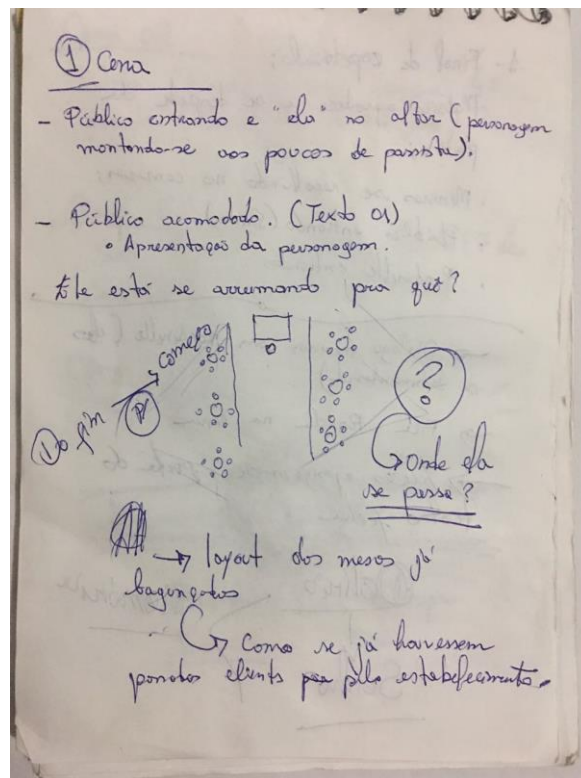 1 Cena
- Público entrando e "ela" no altar (personagem
montando-se aos poucos de passista).
- Público acomodado. (Texto 01)
• Apresentação da personagem.
Ele está se arrumando pra quê?
Do fim → começo
?
Onde ela
se passa?
→ layout das mesas já
bagunçadas
Como se já houvessem
clients pelo estabelecimento.